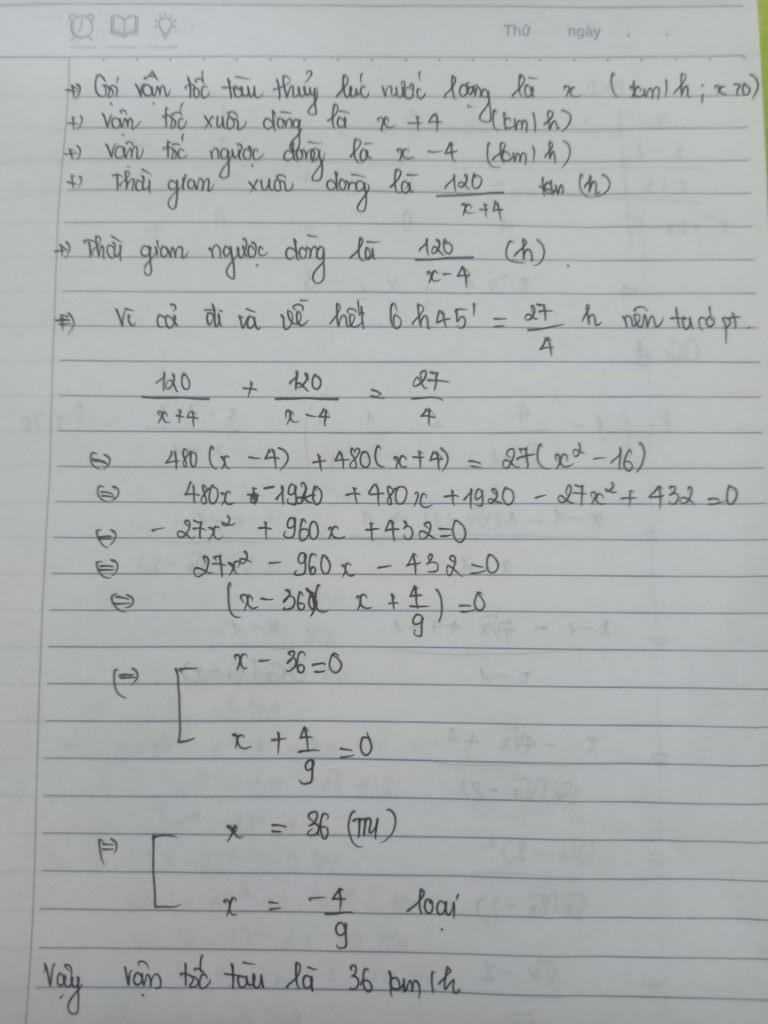 Thứ ngày
+) Gọi vận tốc tàu thủy lúc nước lặng là x (km/h; x>0)
+) vận tốc xuôi dòng là x + 4 (km/h)
+) vận tốc ngược dòng là x - 4 (km/h)
+) Thời gian xuôi dòng là 120/(x+4) (h)
+) Thời gian ngược dòng là 120/(x-4) (h).
+) Vì cả đi và về hết 6h45' = 27/4 h nên ta có pt.
120/(x+4) + 120/(x-4) = 27/4
⇔ 480(x - 4) + 480(x+4) = 27(x² - 16)
⇔ 480x - 1920 + 480x + 1920 - 27x² + 432 = 0
⇔ - 27x² + 960x + 432 = 0
⇔ 27x² - 960x - 432 = 0
⇔ (x - 36)(x + 4/9) = 0
⇔ [ x - 36 = 0
x + 4/9 = 0
⇔ [ x = 36 (TM)
x = -4/9 loại
Vậy vận tốc tàu là 36 km/h